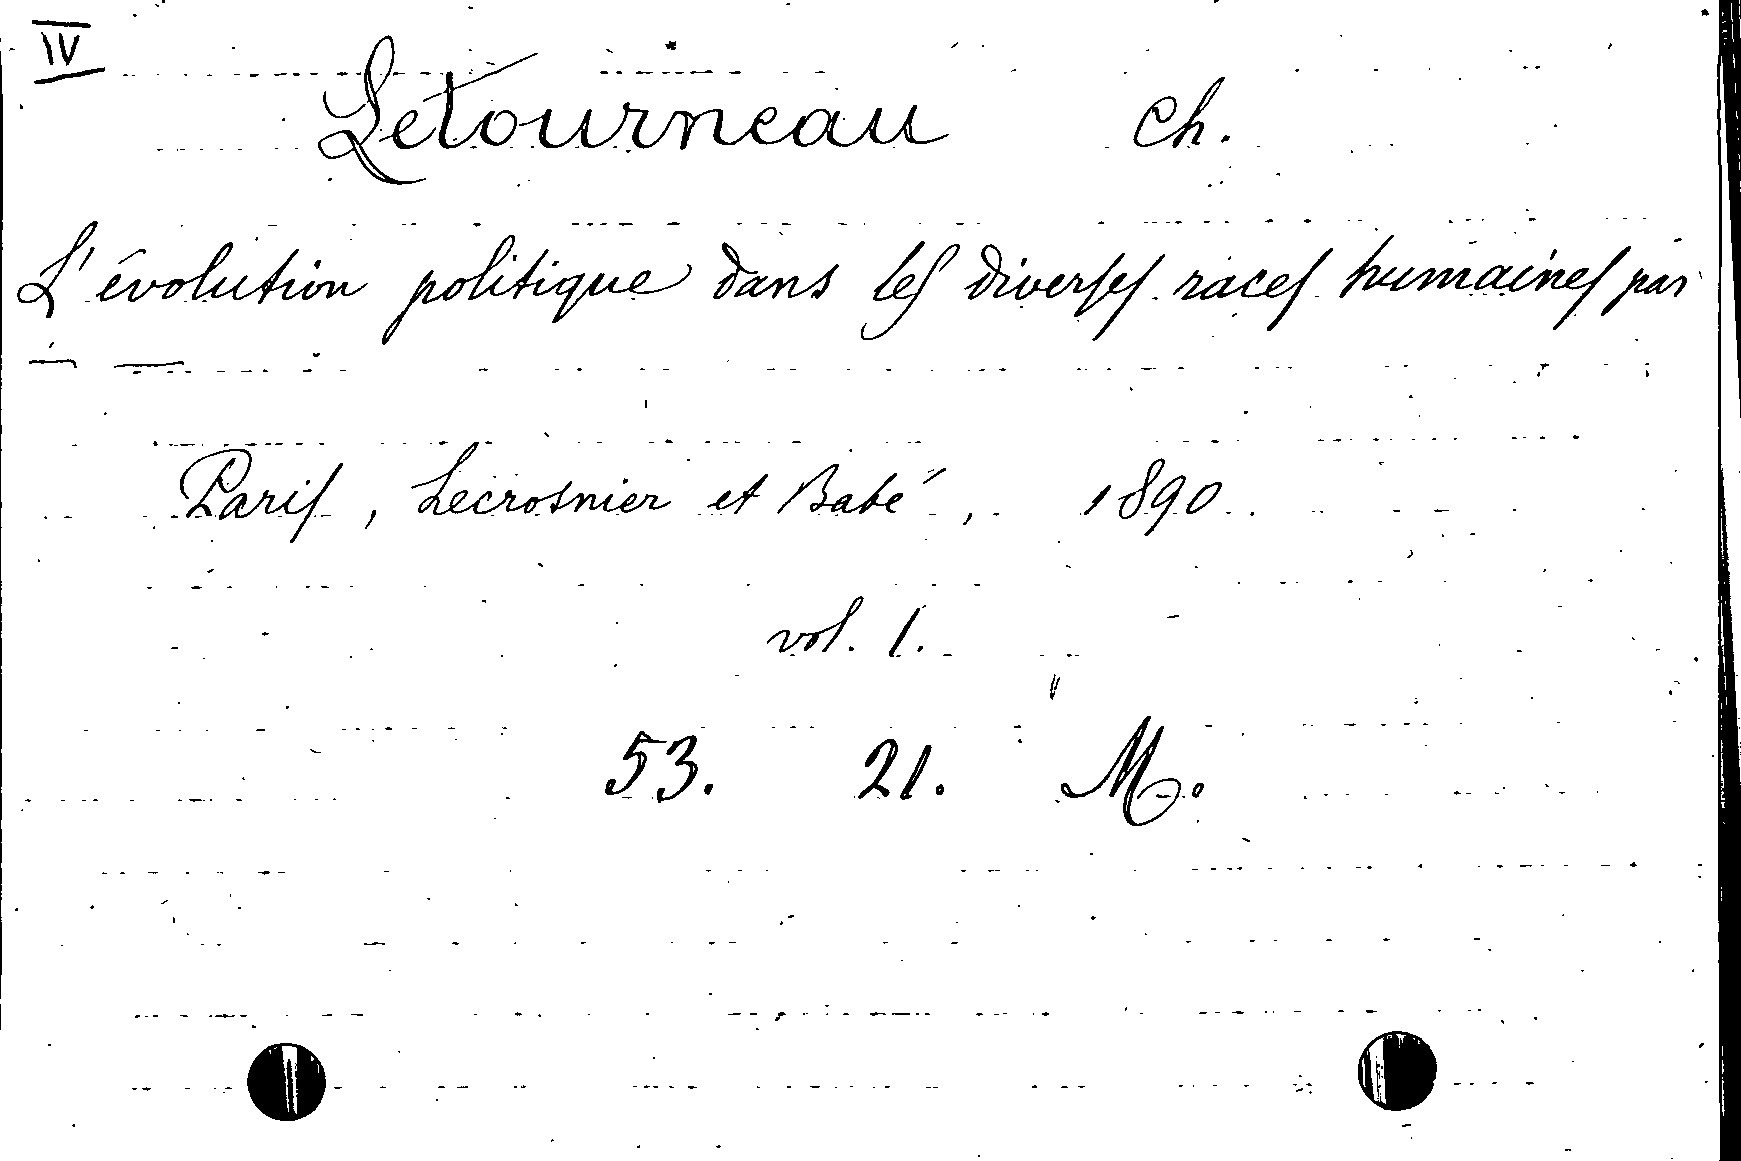 IV
Letourneau Ch.
L'évolution politique dans les diverses races humaines par
— —
Paris, Lecrosnier et Babé, 1890.
vol. 1.
53. 21. M.